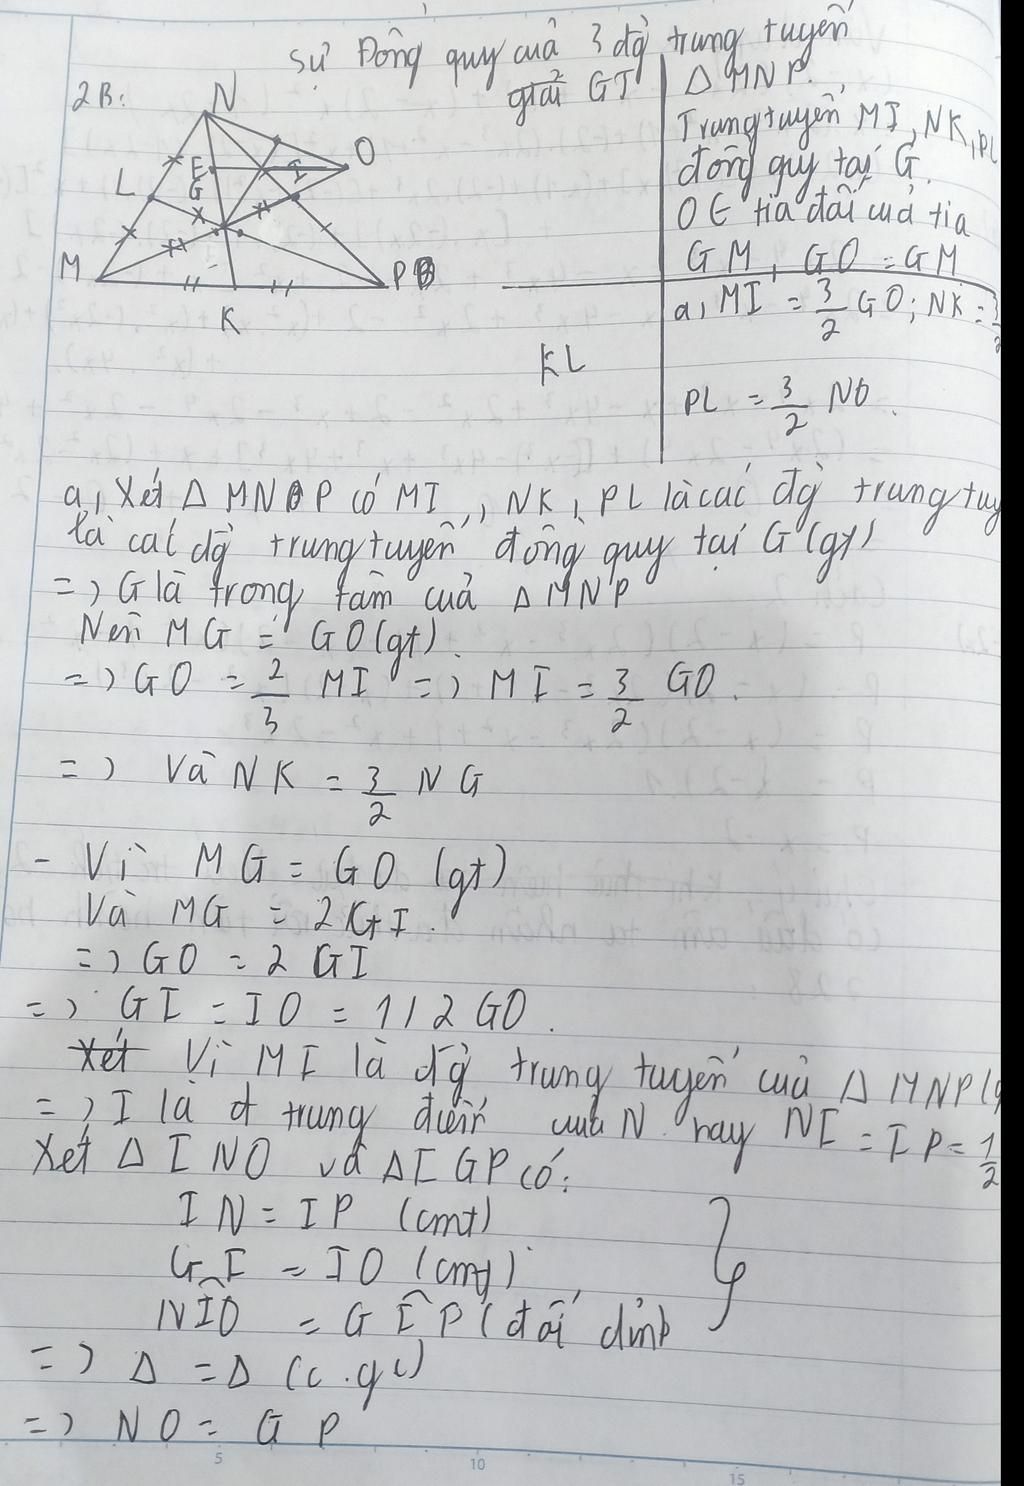 Sự Đồng quy cuả 3 đg̀ trung tuyến
2B:
giải GT
Δ MNP.
Trung tuyến MI, NK, PL
đồng quy tại G.
O ∈ tia đối cuả tia
GM, GO = GM
KL
a, MI = 3/2 GO; NK = 3/2
PL = 3/2 NO.
N
O
E
I
L
G
M
P
K
a, Xét Δ MNP có MI, NK, PL là các đg̀ trung tuy
là các đg̀ trung tuyến đồng quy tại G (gt)
=> G là trong tâm cuả Δ MNP
Nên MG = GO (gt).
=> GO = 2/3 MI => MI = 3/2 GO.
=> và NK = 3/2 NG
- Vì MG = GO (gt)
Và MG = 2GI.
=> GO = 2 GI
=> GI = IO = 1/2 GO.
Xét Vì MI là đg̀ trung tuyến cuả Δ MNP (g
=> I là đ trung điểm cuả N hay NI = IP = 1/2
Xét Δ INO và Δ IGP có:
IN = IP (cmt)
GI = IO (cmt)
NÎO = GÎP (đối đỉnh
=> Δ = Δ (c.gc)
=> NO = GP
5 10 15